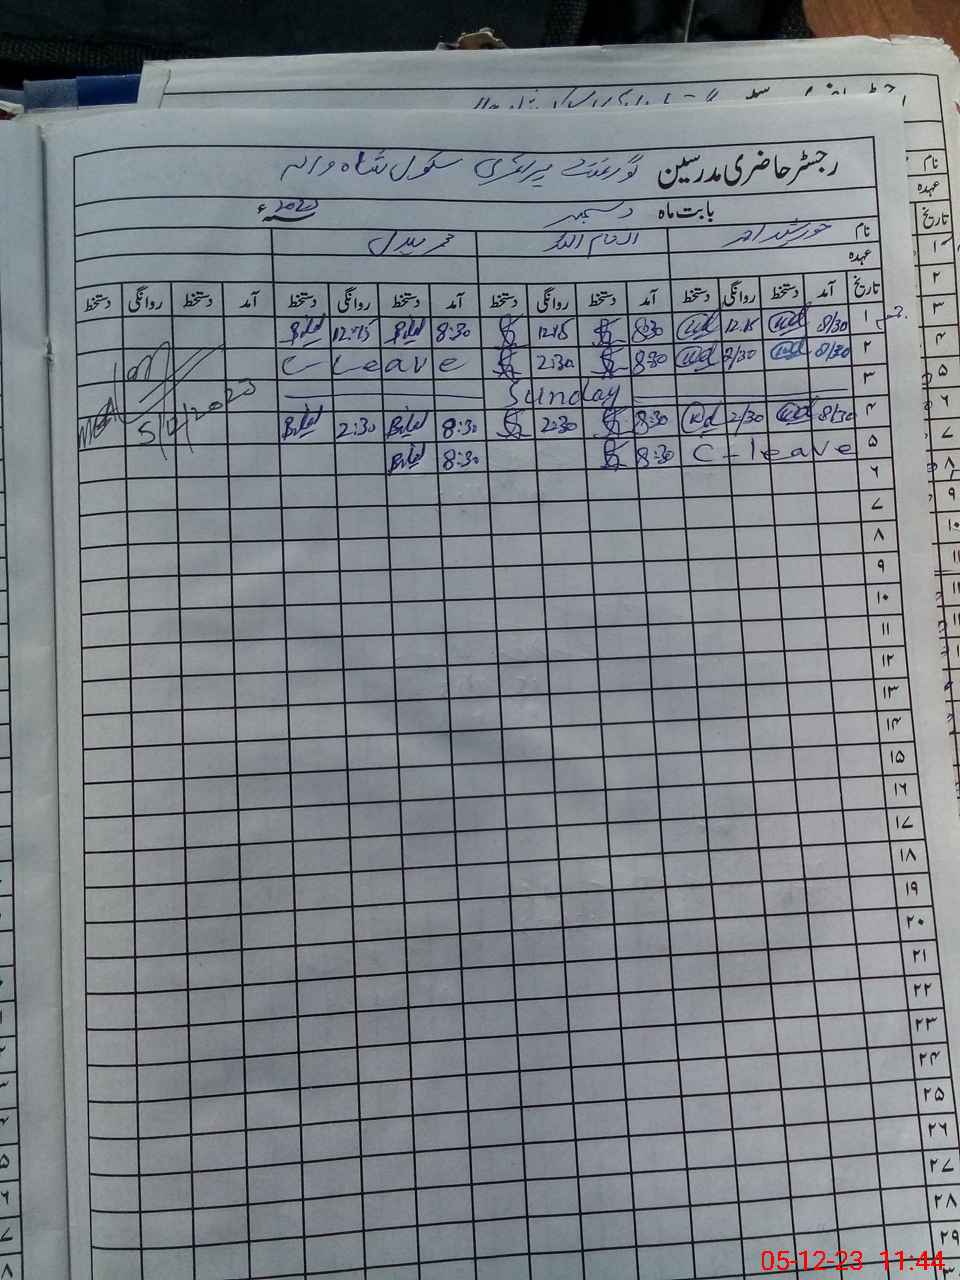 رجسٹر حاضری مدرسین گورنمنٹ پرائمری سکول شاہ والہ
بابت ماہ دسمبر سنہ 2023ء
نام خورشید احمد انعام اللہ محمد بلال
عہدہ
تاریخ آمد دستخط روانگی دستخط آمد دستخط روانگی دستخط آمد دستخط روانگی دستخط آمد دستخط روانگی دستخط
۱ 8/30 12:15 8:30 12:15 8:30 Bilal 12:15 Bilal
۲ 8/30 2/30 8:30 2:30 C Leave
۳ Sunday
۴ 8/30 2/30 8:30 2:30 8:30 Bilal 2:30 Bilal
5/12/2023
۵ C-leave 8:30 8:30 Bilal
۶
۷
۸
۹
۱۰
۱۱
۱۲
۱۳
۱۴
۱۵
۱۶
۱۷
۱۸
۱۹
۲۰
۲۱
۲۲
۲۳
۲۴
۲۵
۲۶
۲۷
۲۸
۲۹
05-12-23 11:44